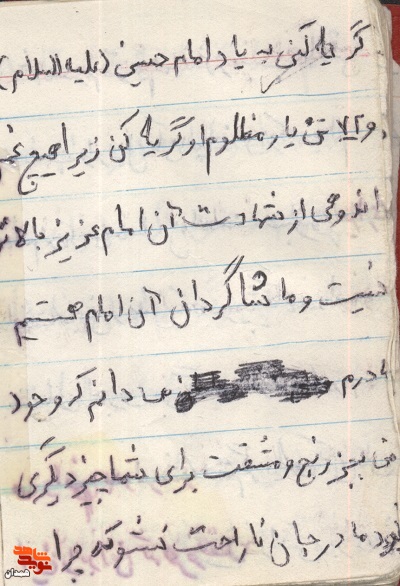 گریه کنی به یاد امام حسین (علیه السلام)
و ۷۲ تن یار مظلوم او گریه کن زیرا هیچ غم
اندوهی از شهادت آن امام عزیز بالاتر
نیست و ما شاگردان آن امام هستیم
مادرم می دانم که وجود
من بجز رنج و مشقت برای شما چیز دیگری
نبود مادر جان ناراحت نشو که چرا
نوید شاهد
همدان